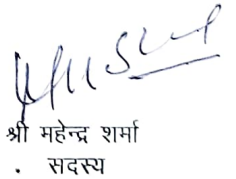 श्री महेन्द्र शर्मा
सदस्य